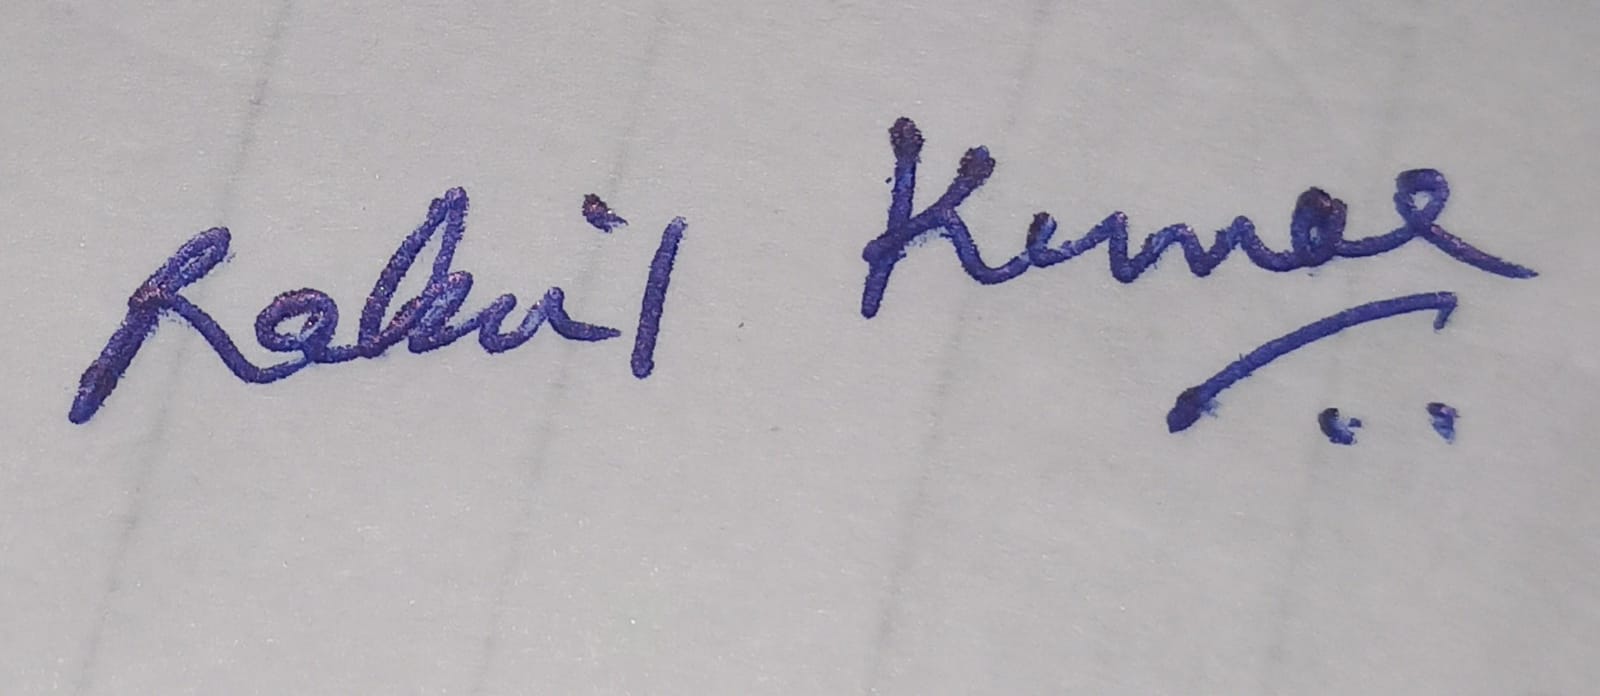 Rahil Kumar